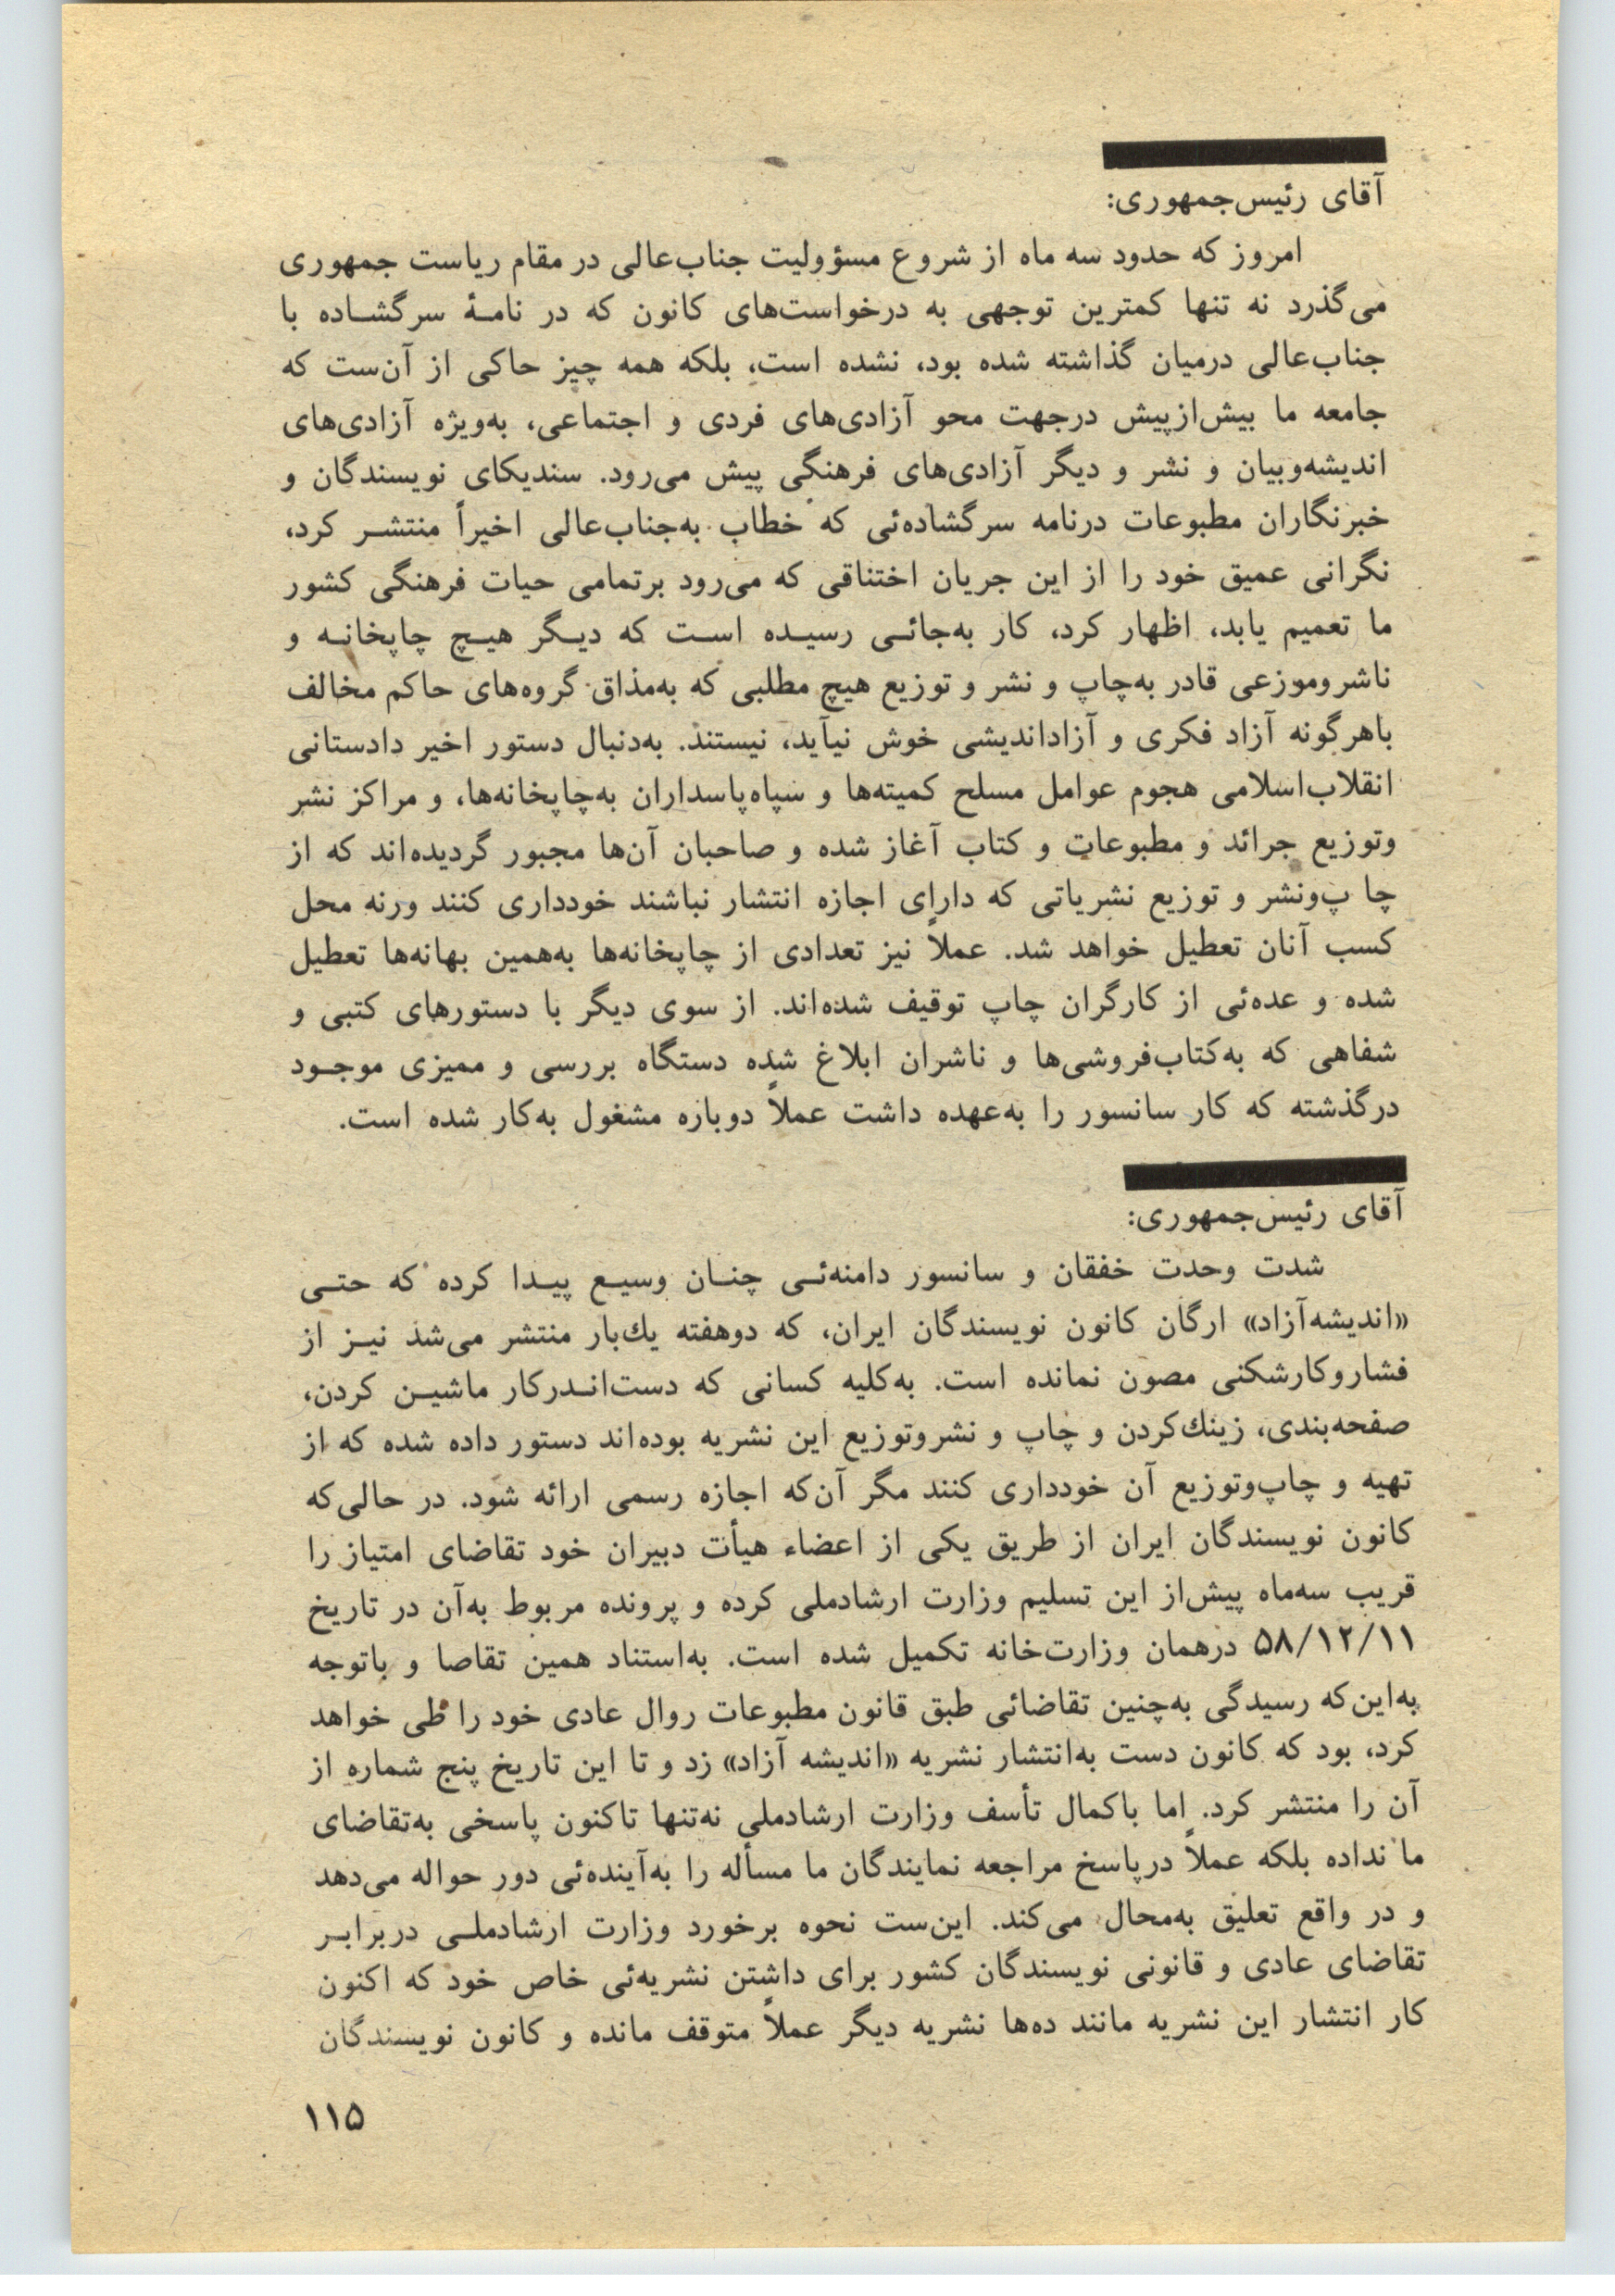 آقای رئیس‌جمهوری:
امروز که حدود سه ماه از شروع مسؤولیت جناب‌عالی در مقام ریاست جمهوری
می‌گذرد نه تنها کمترین توجهی به درخواست‌های کانون که در نامـهٔ سرگشـاده با
جناب‌عالی درمیان گذاشته شده بود، نشده است، بلکه همه چیز حاکی از آن‌ست که
جامعه ما بیش‌ازپیش درجهت محو آزادی‌های فردی و اجتماعی، به‌ویژه آزادی‌های
اندیشه‌وبیان و نشر و دیگر آزادی‌های فرهنگی پیش می‌رود. سندیکای نویسندگان و
خبرنگاران مطبوعات درنامه سرگشاده‌ئی که خطاب به‌جناب‌عالی اخیراً منتشـر کرد،
نگرانی عمیق خود را از این جریان اختناقی که می‌رود برتمامی حیات فرهنگی کشور
ما تعمیم یابد، اظهار کرد، کار به‌جائـی رسیـده اسـت که دیـگر هیـچ چاپخانـه و
ناشروموزعی قادر به‌چاپ و نشر و توزیع هیچ مطلبی که به‌مذاق گروه‌های حاکم مخالف
باهرگونه آزاد فکری و آزاداندیشی خوش نیآید، نیستند. به‌دنبال دستور اخیر دادستانی
انقلاب‌اسلامی هجوم عوامل مسلح کمیته‌ها و سپاه‌پاسداران به‌چاپخانه‌ها، و مراکز نشر
وتوزیع جرائد و مطبوعات و کتاب آغاز شده و صاحبان آن‌ها مجبور گردیده‌اند که از
چا پ‌ونشر و توزیع نشریاتی که دارای اجازه انتشار نباشند خودداری کنند ورنه محل
کسب آنان تعطیل خواهد شد. عملاً نیز تعدادی از چاپخانه‌ها به‌همین بهانه‌ها تعطیل
شده و عده‌ئی از کارگران چاپ توقیف شده‌اند. از سوی دیگر با دستورهای کتبی و
شفاهی که به‌کتاب‌فروشی‌ها و ناشران ابلاغ شده دستگاه بررسی و ممیزی موجـود
درگذشته که کار سانسور را به‌عهده داشت عملاً دوباره مشغول به‌کار شده است.
آقای رئیس‌جمهوری:
شدت وحدت خفقان و سانسور دامنه‌ئـی چنـان وسیـع پیـدا کرده که حتـی
«اندیشه‌آزاد» ارگان کانون نویسندگان ایران، که دوهفته یك‌بار منتشر می‌شد نیـز از
فشاروکارشکنی مصون نمانده است. به‌کلیه کسانی که دست‌انـدرکار ماشیـن کردن،
صفحه‌بندی، زینك‌کردن و چاپ و نشروتوزیع این نشریه بوده‌اند دستور داده شده که از
تهیه و چاپ‌وتوزیع آن خودداری کنند مگر آن‌که اجازه رسمی ارائه شود. در حالی‌که
کانون نویسندگان ایران از طریق یکی از اعضاء هیأت دبیران خود تقاضای امتیاز را
قریب سه‌ماه پیش‌از این تسلیم وزارت ارشادملی کرده و پرونده مربوط به‌آن در تاریخ
۵۸/۱۲/۱۱ درهمان وزارت‌خانه تکمیل شده است. به‌استناد همین تقاصا و باتوجه
به‌این‌که رسیدگی به‌چنین تقاضائی طبق قانون مطبوعات روال عادی خود را طی خواهد
کرد، بود که کانون دست به‌انتشار نشریه «اندیشه آزاد» زد و تا این تاریخ پنج شماره از
آن را منتشر کرد. اما باکمال تأسف وزارت ارشادملی نه‌تنها تاکنون پاسخی به‌تقاضای
ما نداده بلکه عملاً درپاسخ مراجعه نمایندگان ما مسأله را به‌آینده‌ئی دور حواله می‌دهد
و در واقع تعلیق به‌محال می‌کند. این‌ست نحوه برخورد وزارت ارشادملـی دربرابـر
تقاضای عادی و قانونی نویسندگان کشور برای داشتن نشریه‌ئی خاص خود که اکنون
کار انتشار این نشریه مانند ده‌ها نشریه دیگر عملاً متوقف مانده و کانون نویسندگان
۱۱۵